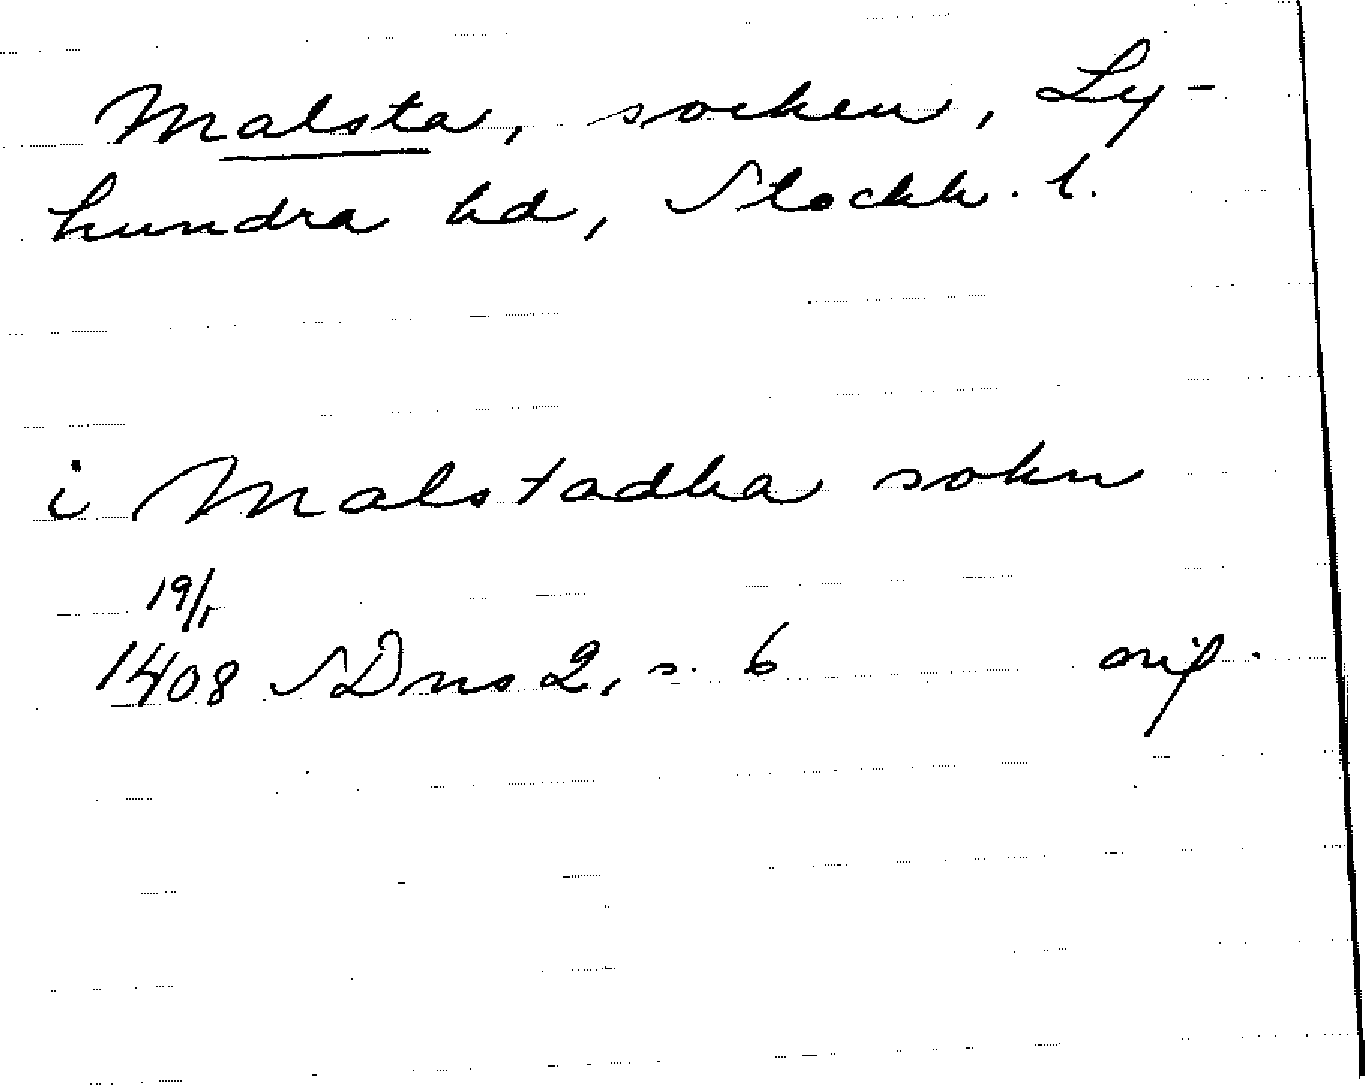 Malsta, socken, Ly-
hundra hd, Stockh. l.
i Malstadha sokn
19/1
1408 SDns 2, s. 6 orig.